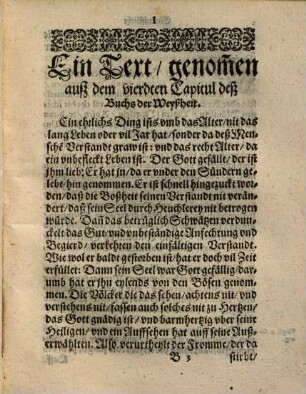 1
Ein Text / genom̃en
auß dem vierdten Capitul deß
Buchs der Weyßheit.
Ein ehrlichs Ding ists vmb das Alter / nit das
lang Leben oder vil Jar hat / sonder da deß Men-
schẽ Verstandt graw ist: vnd das recht Alter / da
ein vnbefleckt Leben ist. Der Gott gefällt / der ist
jhm lieb: Er hat jn / da er vnder den Sündern ge-
lebt / hin genommen. Er ist schnell hingezuckt wor-
den / daß die Boßheit seinen Verstandt nit verän-
dert / daß sein Seel durch Heuchlerey nit betrogen
würde. Dañ das betrüglich Schwätzen verdun-
ckelt das Gut / vnd vnbeständige Anfechtung vnd
Begierd / verkehrt den einfältigen Verstandt.
Wie wol er baldt gestorben ist / hat er doch vil Zeit
erfüllet: Dann sein Seel war Gott gefällig / dar-
umb hat er jhn eylends von den Bösen genom-
men. Die Völcker die das sehen / achtens nit / vnd
verstehens nit / fassen auch solches nit zu Hertzen /
das Gott gnädig ist / vnd barmhertzig vber seine
Heiligen / vnd ein Auffsehen hat auff seine Auß-
erwählten. Also verurtheylt der Fromme / der da
B 3 stirbt /